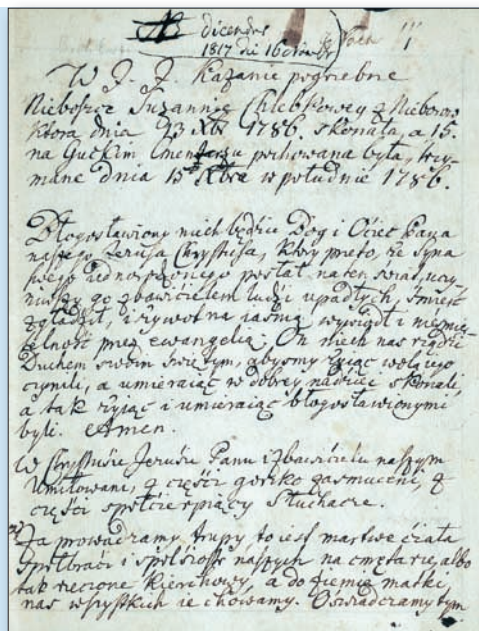 NB dicendus
1817 die 16
W I. I. Kazanie pogrzebne
Nieboszce Zuzannie Chlebkowey z Nieborow
ktora dnia 13 Xbr 1786. skonała, a 15.
na Guckim Cmentarzu pochowana była, trzy-
mane dnia 15 Xbra w południe 1786.
Błogosławiony niech będzie Bog i Ociec Pana
naszego Jezusa Chrystusa, ktory przeto, że Syna
swego jednorodzonego posłał na ten świat, uczy-
niwszy go zbawicielem ludzi upadłych, śmierć
zgładził, i żywot na iaśnią wywiodł i nieśmier-
telność przez ewangelią. On niech nas rządzi
Duchem swoim świętym, abyśmy żyiąc wolą iego
czynili, a umieraiąc w dobrey nadziei skonali,
a tak żyiąc i umieraiąc błogosławionymi
byli. Amen.
W Chrystusie Jezusie Panu i zbawicielu naszym
Umiłowani, z części gorzko zasmuceni, z
części społcierpiący Słuchacze.
Za prowadzamy trupy to iest martwe ciała
Społbraci i społsiostr naszych na cmętarze, albo
tak rzeczone Kierchowy, a do ziemie matki
nas wszystkich ie chowamy. Oświadczamy tym